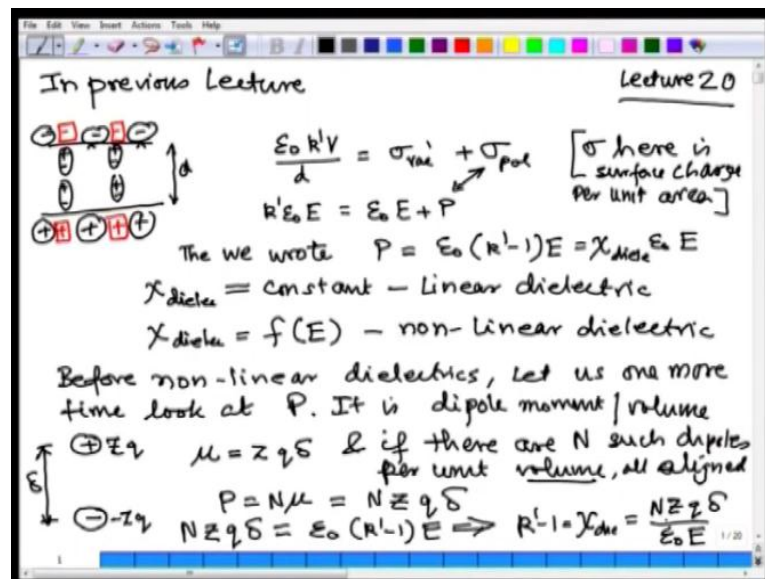 File Edit View Insert Actions Tools Help
In previous Lecture
Lecture 20
ε₀ k' V / d = σ_vac + σ_pol
[σ here is surface charge per unit area]
d
k' ε₀ E = ε₀ E + P
The we wrote P = ε₀ (k'-1) E = χ_diele ε₀ E
χ_dielec = constant - Linear dielectric
χ_dielec = f(E) - non-linear dielectric
Before non-linear dielectrics, Let us one more
time look at P. It is dipole moment / volume
+ zq μ = z q δ & if there are N such dipoles
δ per unit volume, all aligned
- -zq P = Nμ = N z q δ
N z q δ = ε₀ (k'-1) E ⇒ k'-1 = χ_die = N z q δ / ε₀ E
1/20
1